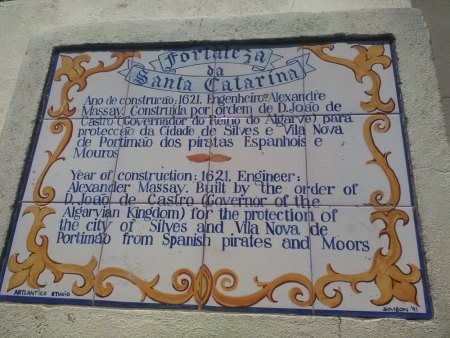 Fortaleza
da
Santa Catarina
Ano de construcão: 1621. Engenheiro: Alexandre
Massay. Construida por ordem de D. João de
Castro (Governador do Reino do Algarve) para
protecção da Cidade de Silves e Vila Nova
de Portimão dos piratas Espanhois e
Mouros
Year of construction: 1621. Engineer:
Alexander Massay. Built by the order of
D. João de Castro (Governor of the
Algarvian Kingdom) for the protection of
the city of Silves and Vila Nova de
Portimão from Spanish pirates and Moors
ARTLANTICO STUDIO
SIMEON '91